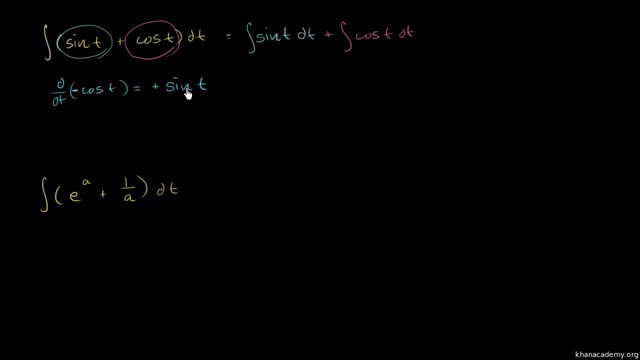 ∫(sin t + cos t) dt = ∫sin t dt + ∫cos t dt
d/dt(-cos t) = + sin t
∫(e^a + 1/a) dt
khanacademy.org